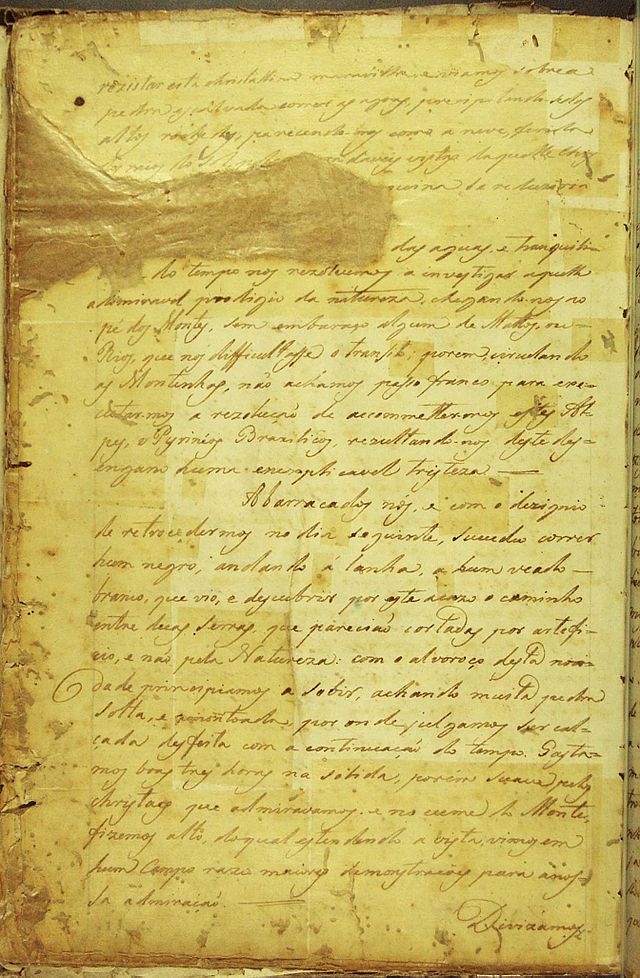 rezistar esta christallina maravilha, e viamos sobre a
pedra escalvada correr as agoas, precipitando-se dos
altos rochedos, parecendo-nos como a neve, ferida
dos raios do Sol
das aguas, e tranquili-
do tempo nos rezolvemos a investigar aquelle
admiravel prodigio da natureza, chegando-nos ao
pé dos Montes, sem embaraço algum de Mattos, ou
Rios, que nos difficultasse o transito; porem, circulando
as Montanhas, não achamos passo franco para exe-
cutarmos a rezolução de accommettermos estes Al-
pes, e Pyrinéos Brazilicos, rezultando-nos deste des-
engano huma inexplicavel tristeza —
Abarracados nós, e com o dezignio
de retrocedermos no dia seguinte, succedeo correr
hum negro, andando á lenha, a hum veado
branco, que vio, e descubrir por este acazo o caminho
entre duas serras, que parecião cortadas por artefi-
cio, e não pela Natureza: com o alvoroço desta novi-
dade principiamos a sobir, achando muita pedra
solta, e amontoada, por onde julgamos ser cal-
çada desfeita com a continuação do tempo. Gasta-
mos boas tres horas na sobida, porem suave pelos
christaes que admiravamos, e no cume do Monte,
fizemos alto, do qual estendendo a vista, vimos em
hum Campo razo maiores demonstracoes para a nos-
sa admiração. —
Divizamos